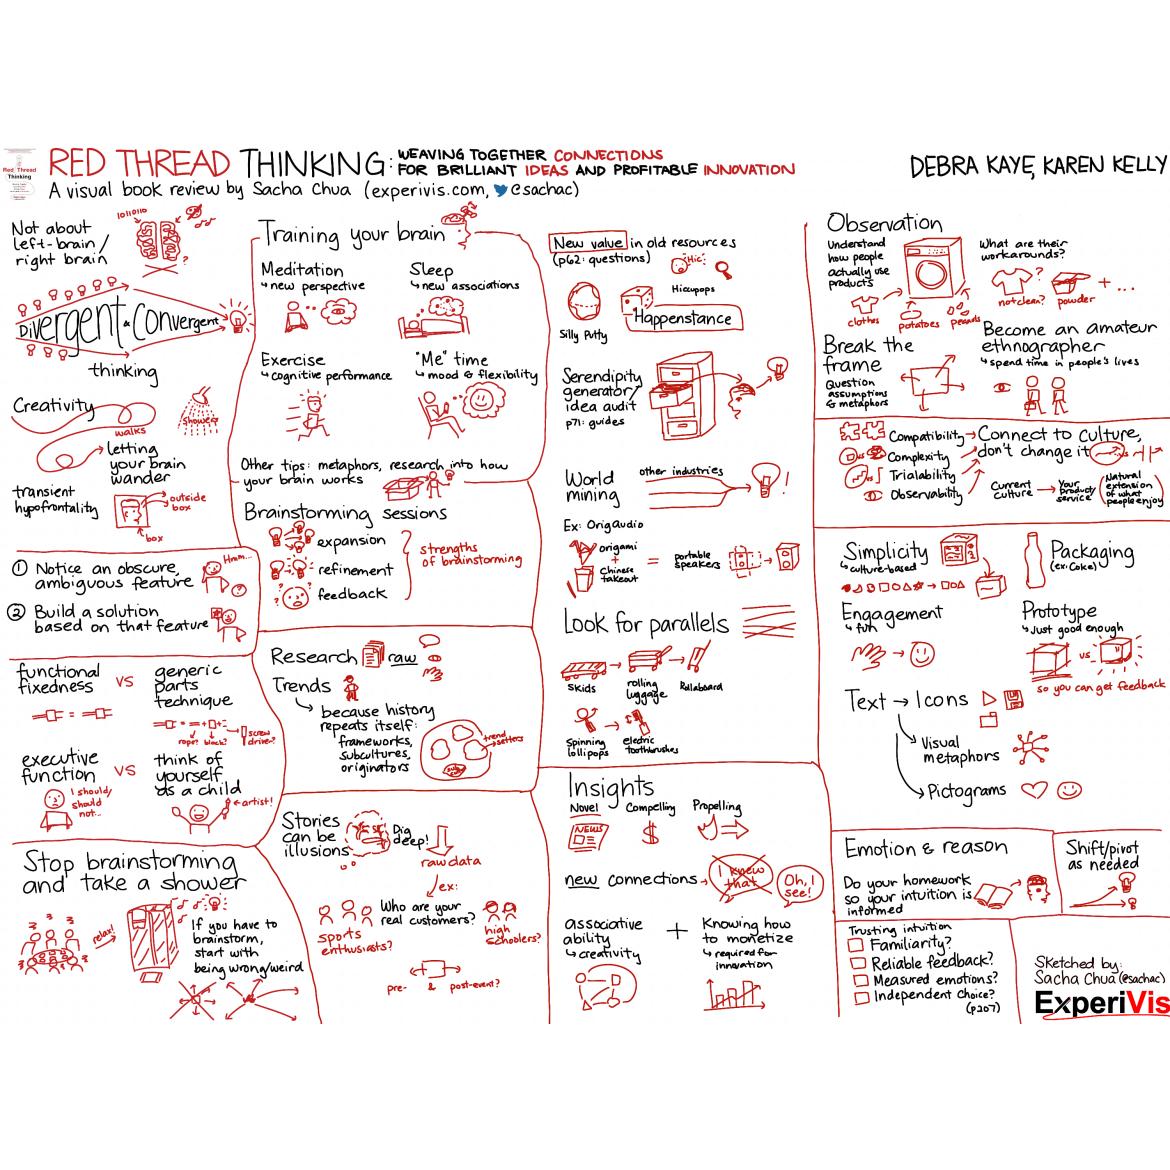 Red Thread
Thinking
RED THREAD THINKING: WEAVING TOGETHER CONNECTIONS
FOR BRILLIANT IDEAS AND PROFITABLE INNOVATION
DEBRA KAYE, KAREN KELLY
A visual book review by Sacha Chua (experivis.com, @sachac)
Not about
left-brain/
right brain
10110110
?
Divergent & Convergent
thinking
Creativity
walks
shower
letting
your brain
wander
transient
hypofrontality
outside
box
box
① Notice an obscure,
ambiguous feature
Hmm...
?
② Build a solution
based on that feature
functional
fixedness
vs
generic
parts
technique
rope?
block?
screw
drive?
executive
function
vs
think of
yourself
as a child
I should/
should
not...
artist!
Stop brainstorming
and take a shower
relax!
If you have to
brainstorm,
start with
being wrong/weird
Training your brain
Meditation
new perspective
Sleep
new associations
Exercise
cognitive performance
"Me" time
mood & flexibility
Other tips: metaphors, research into how
your brain works
Brainstorming sessions
expansion
refinement
feedback
strengths
of brainstorming
Research
raw
Trends
because history
repeats itself:
frameworks,
subcultures,
originators
trend
setters
Stories
can be
illusions.
Dig
deep!
raw data
ex:
Who are your
real customers?
sports
enthusiasts?
high
schoolers?
pre- & post-event?
New value in old resources
(p62: questions)
Hic!
Hiccupops
Silly Putty
Happenstance
Serendipity
generator/
idea audit
p71: guides
World
mining
other industries
!
Ex: OrigAudio
origami
+
Chinese
takeout
=
portable
speakers
Look for parallels
skids
rolling
luggage
Rollaboard
Spinning
lollipops
electric
toothbrushes
Insights
Novel
Compelling
Propelling
NEWS
$
new connections
I knew
that
Oh, I
see!
associative
ability
creativity
+
Knowing how
to monetize
required for
innovation
Observation
Understand
how people
actually use
products
clothes
potatoes
peanuts
What are their
workarounds?
?
not clean?
powder
+ ...
Break the
frame
Question
assumptions
& metaphors
Become an amateur
ethnographer
spend time in people's lives
Compatibility
Complexity
Trialability
Observability
vs
vs
Connect to culture,
don't change it
vs
Current
culture
Your
product/
service
(Natural
extension
of what
people enjoy)
Simplicity
culture-based
Packaging
(ex: Coke)
Engagement
fun
Prototype
Just good enough
vs
so you can get feedback
Text → Icons
Visual
metaphors
Pictograms
Emotion & reason
Do your homework
so your intuition is
informed
Shift/pivot
as needed
Trusting intuition
Familiarity?
Reliable feedback?
Measured emotions?
Independent choice?
(p207)
Sketched by:
Sacha Chua (@sachac)
ExperiVis